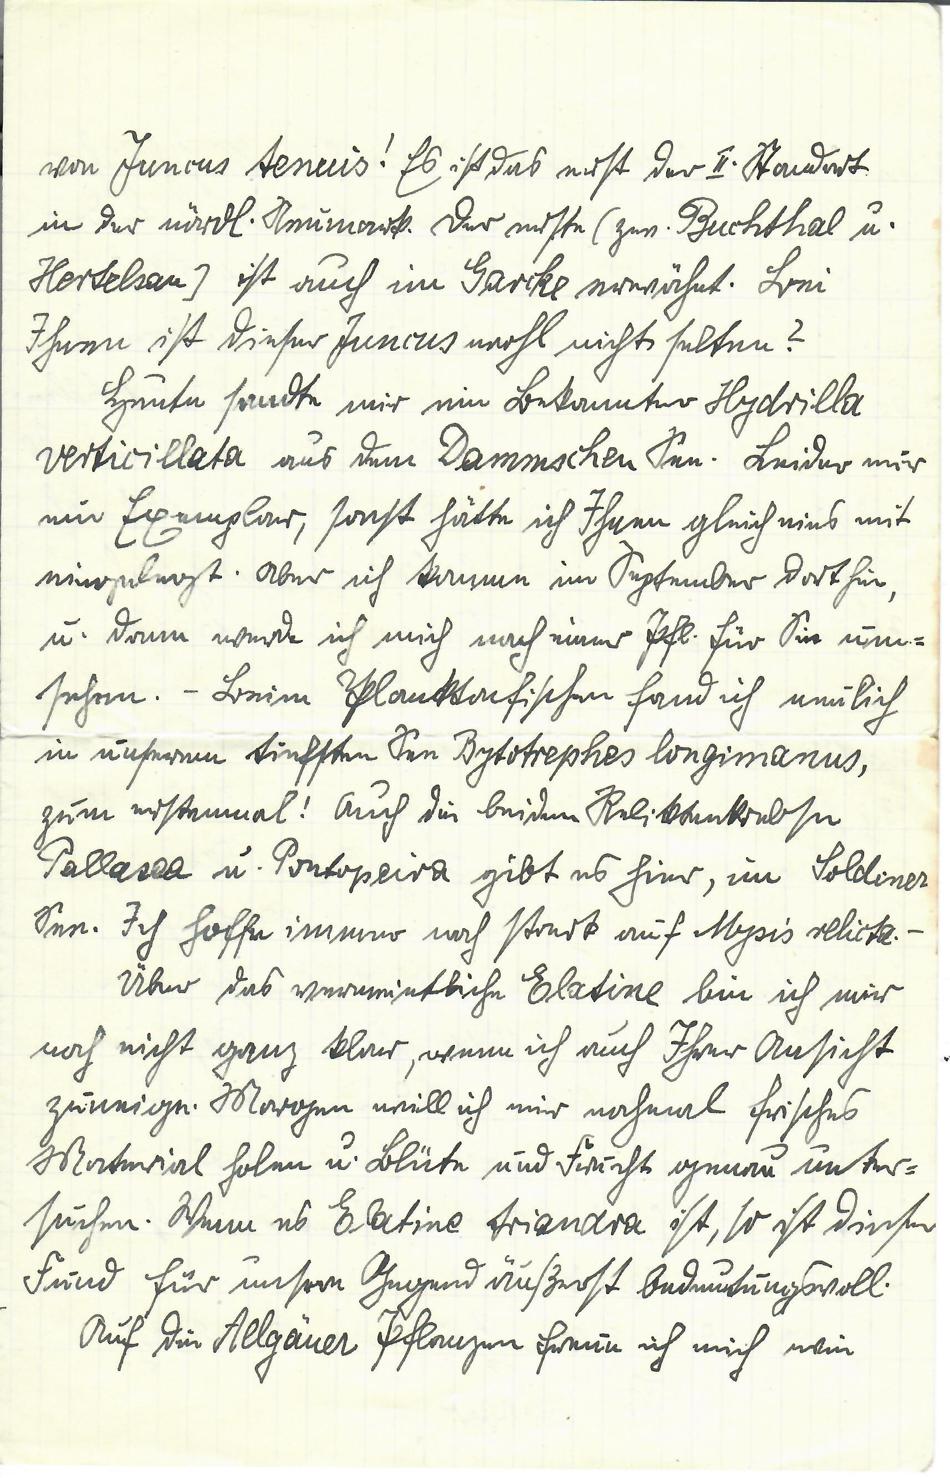 von Juncus tenuis! Es ist das erst der II. Standort
in der nördl. Neumark. Der erste (zw. Buchthal u.
Hertelsau) ist auch im Garcke erwähnt. Bei
Ihnen ist dieser Juncus wohl nicht selten?
Heute sandte mir ein Bekannter Hydrilla
verticillata aus dem Dammschen See. Leider nur
ein Exemplar, sonst hätte ich Ihnen gleich eins mit
eingelegt. Aber ich komme im September dorthin,
u. dann werde ich mich nach einer Pfl. für Sie um=
sehen. – Beim Planktonfischen fand ich neulich
in unserem tiefsten See Bytotrephes longimanus,
zum erstenmal! Auch die beiden Reliktenkrebse
Pallasea u. Pontopeira gibt es hier, im Soldiner
See. Ich hoffe immer noch stark auf Mysis relicta. –
Über das vermeintliche Elatine bin ich mir
noch nicht ganz klar, wenn ich auch Ihrer Ansicht
zuneige. Morgen will ich mir nochmal frisches
Material holen u. Blüte und Frucht genau unter=
suchen. Wenn es Elatine triandra ist, so ist dieser
Fund für unsere Gegend äußerst bedeutungsvoll.
Auf die Allgäuer Pflanzen freue ich mich wie